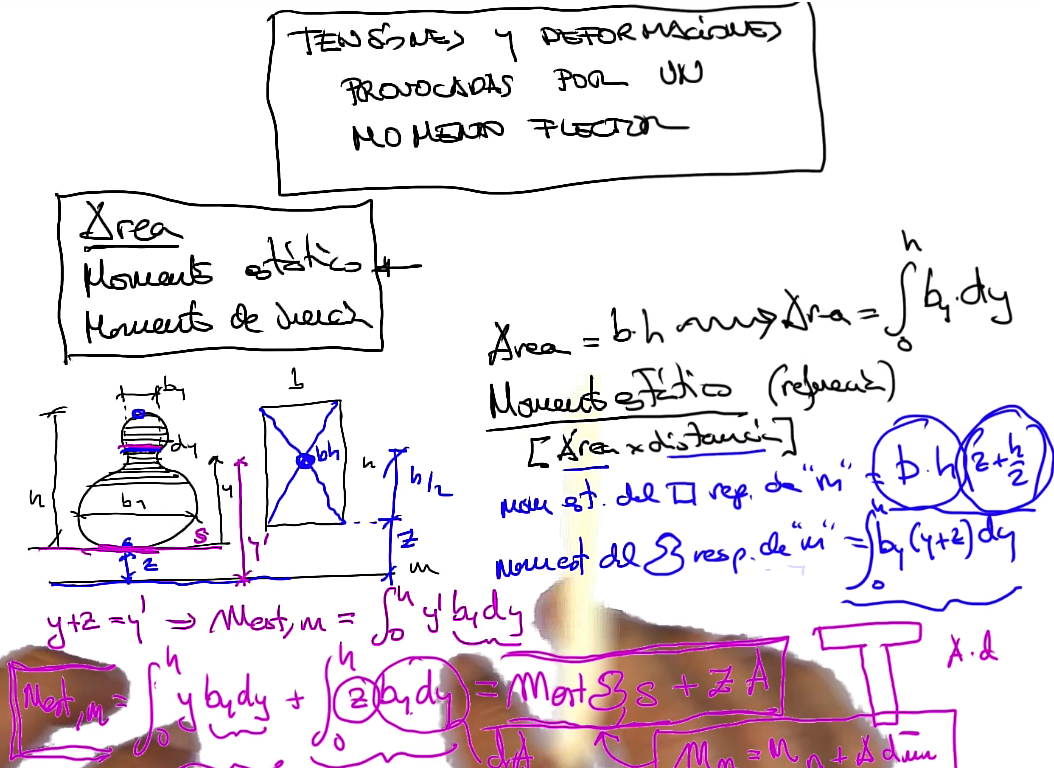 TENSIONES Y DEFORMACIONES
PROVOCADAS POR UN
MOMENTO FLECTOR
Área
Momento estático
Momento de inercia
Área = b·h → Área = ∫₀ʰ by·dy
Momento estático (referencia)
[Área x distancia]
mom est. del □ resp. de "m" = b·h (z + h/2)
mom est del resp. de "m" = ∫₀ʰ by (y+z) dy
by
dy
h
by
y
s
z
y'
b
bh
h
h/2
z
m
y+z = y' ⇒ Mest,m = ∫₀ʰ y' by dy
A·d
Mest,m = ∫₀ʰ y by dy + ∫₀ʰ z by dy = Mest s + z A
dA